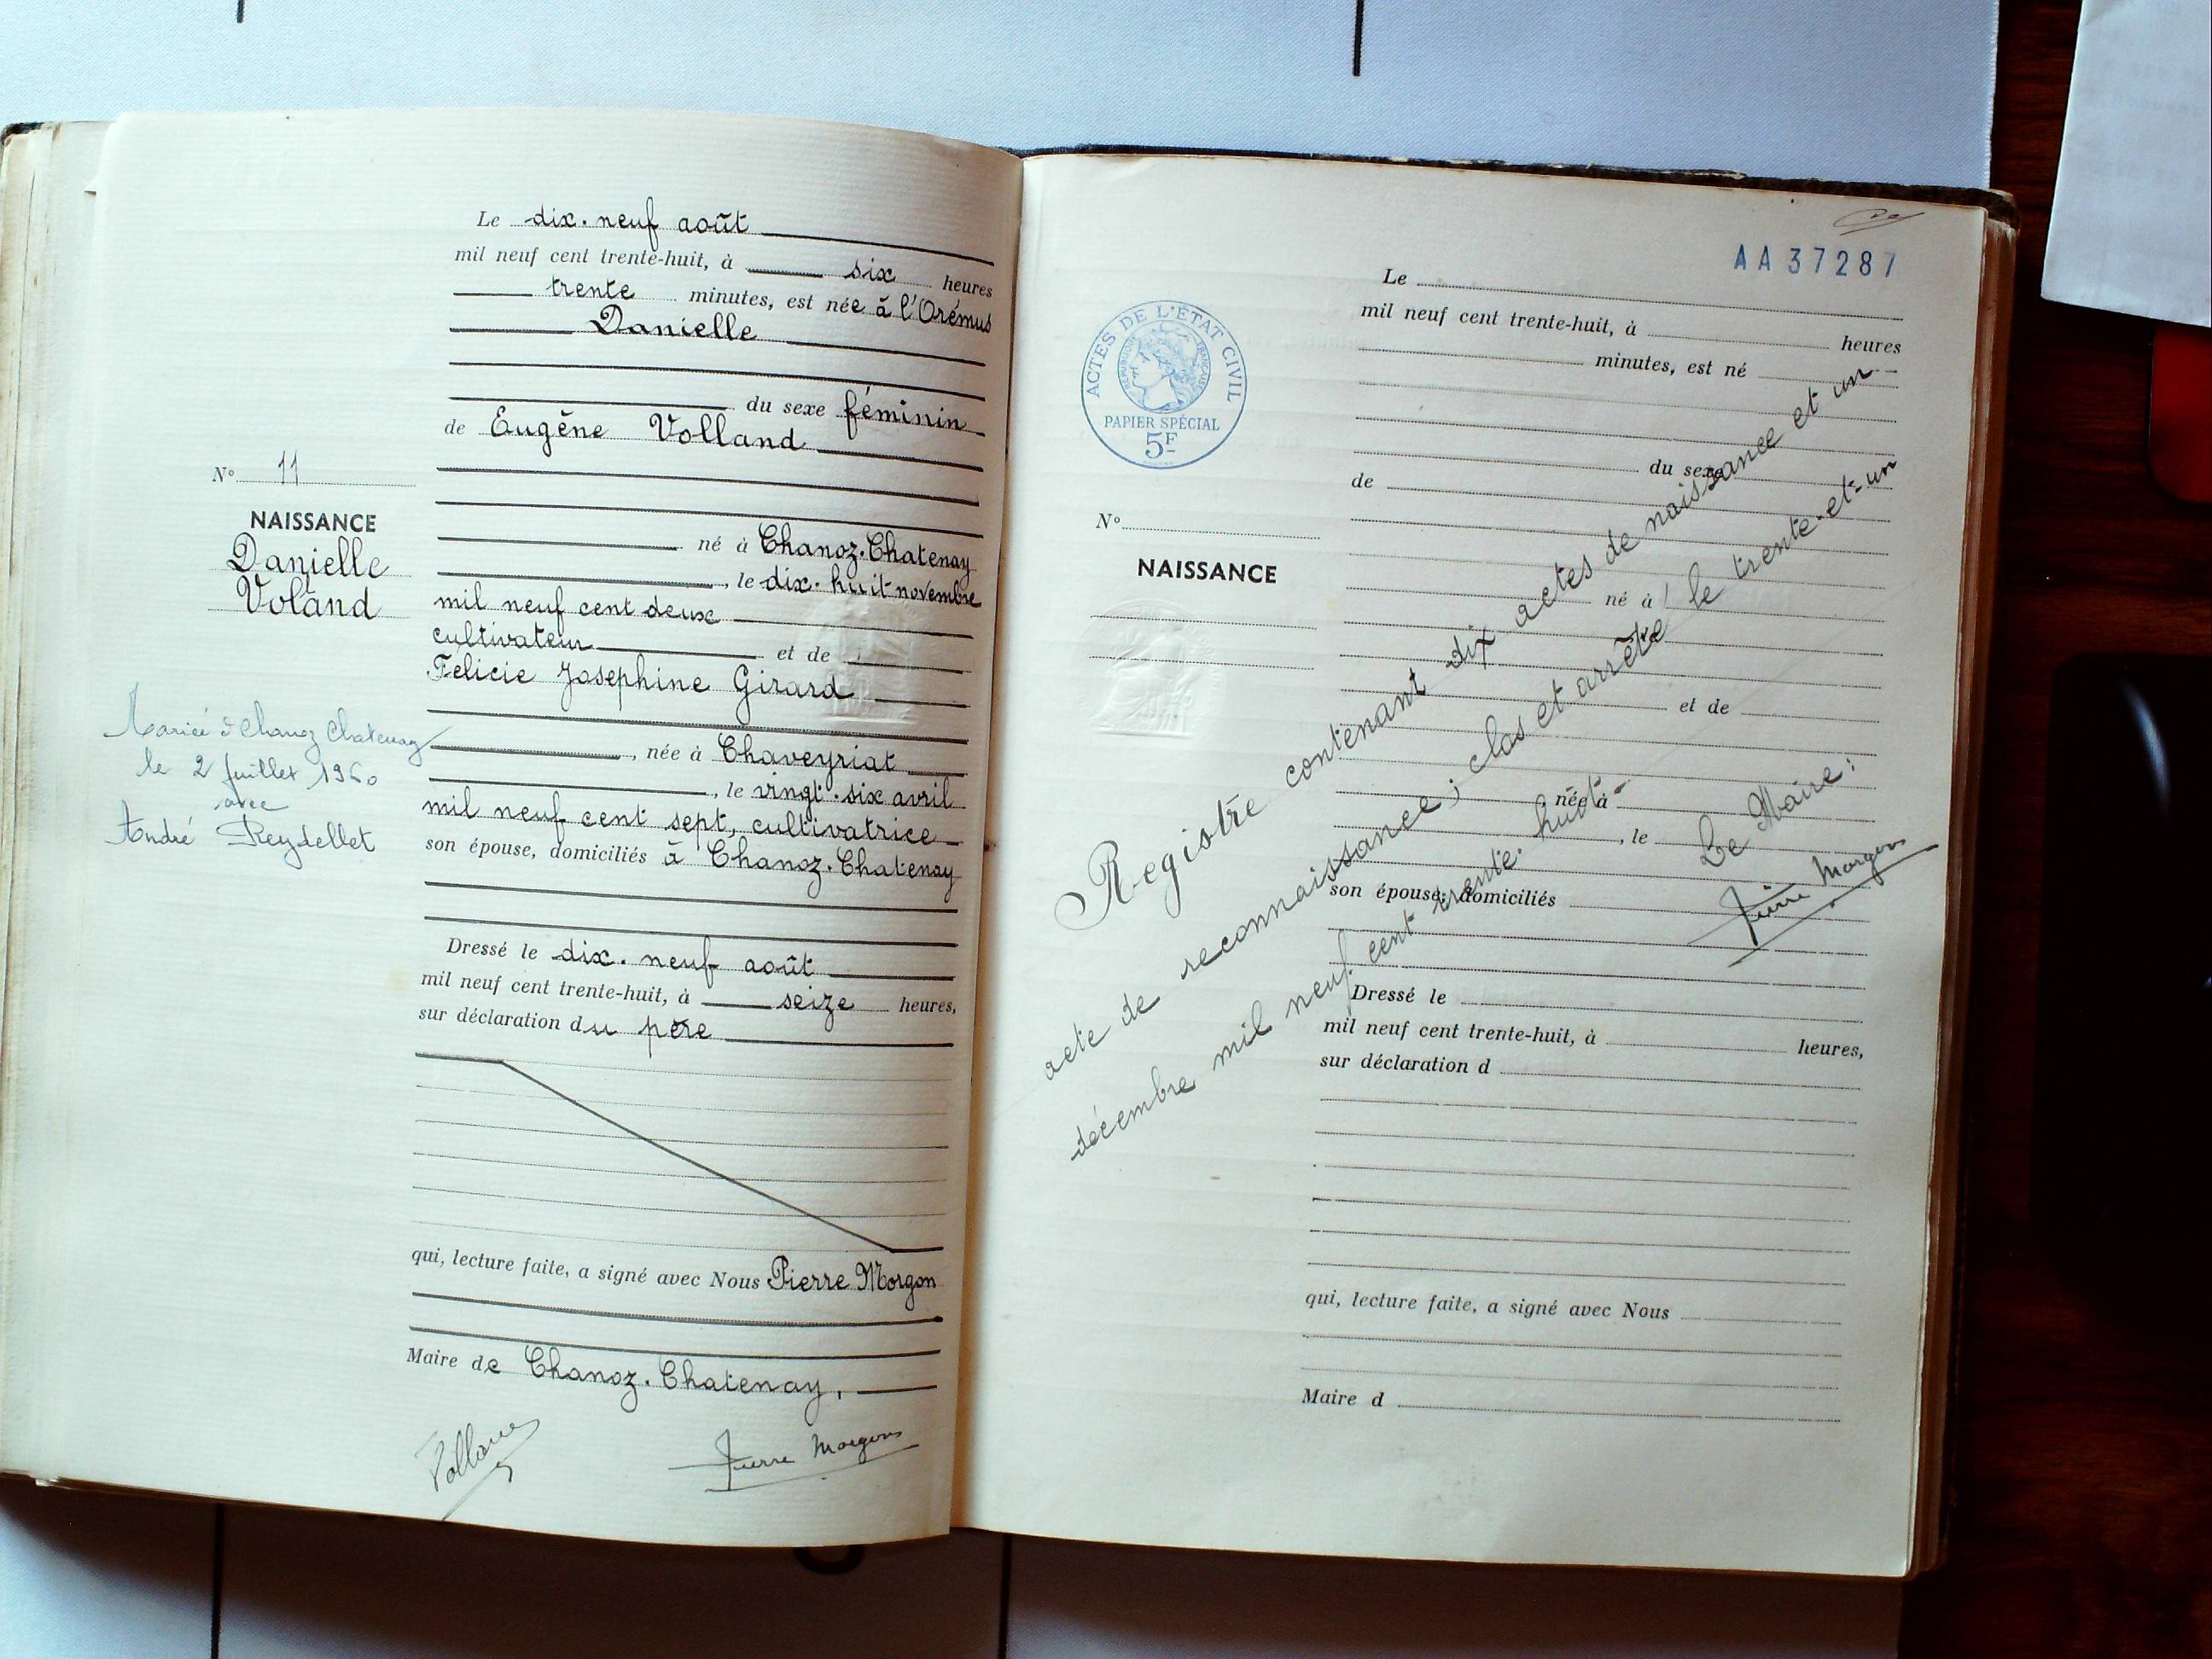 Le dix-neuf août
mil neuf cent trente-huit, à six heures
trente minutes, est née à l'Orémus
Danielle
du sexe féminin
de Eugène Volland
né à Chanoz-Chatenay
, le dix-huit novembre
mil neuf cent deux
cultivateur et de
Felicie Josephine Girard
, née à Chaveyriat
, le vingt-six avril
mil neuf cent sept, cultivatrice
son épouse, domiciliés à Chanoz-Chatenay
Dressé le dix-neuf août
mil neuf cent trente-huit, à seize heures,
sur déclaration du père
qui, lecture faite, a signé avec Nous Pierre Morgon
Maire de Chanoz-Chatenay,
Volland
Pierre Morgon
N° 11
NAISSANCE
Danielle
Voland
Mariée à Chanoz Chatenay
le 2 Juillet 1960
avec
André Reydellet
AA37287
ACTES DE L'ÉTAT CIVIL
RÉPUBLIQUE FRANÇAISE
PAPIER SPÉCIAL
5F
N°
NAISSANCE
Le
mil neuf cent trente-huit, à heures
minutes, est né
du sexe
de
né à
et de
née à
, le
son épouse, domiciliés
Dressé le
mil neuf cent trente-huit, à heures,
sur déclaration d
qui, lecture faite, a signé avec Nous
Maire d
Registre contenant dix actes de naissance et un
acte de reconnaissance ; clos et arrêté le trente-et-un
décembre mil neuf cent trente-huit.
Le Maire :
Pierre Morgon